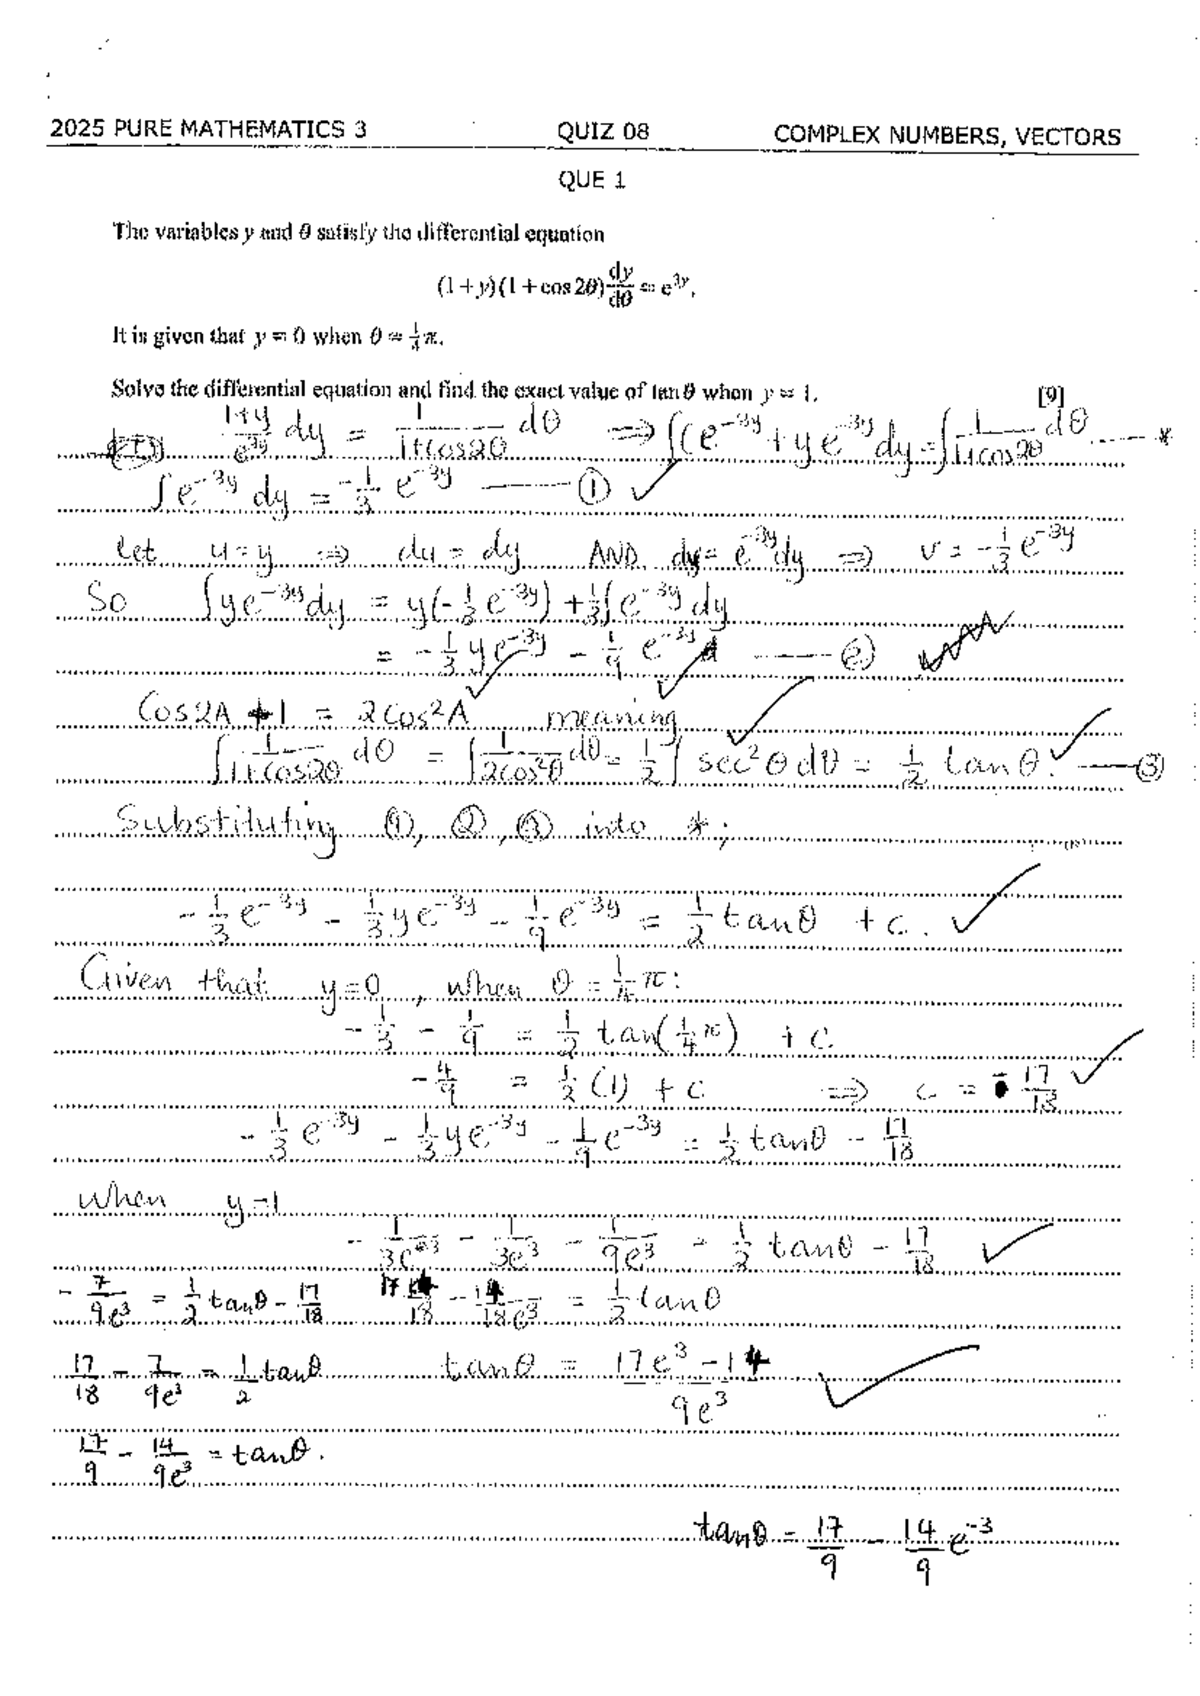 2025 PURE MATHEMATICS 3 QUIZ 08 COMPLEX NUMBERS, VECTORS
QUE 1
The variables y and θ satisfy the differential equation
(1 + y)(1 + cos 2θ) dy/dθ = e^{3y}.
It is given that y = 0 when θ = 1/4 π.
Solve the differential equation and find the exact value of tan θ when y = 1. [9]
(1+y)/e^{3y} dy = 1/(1+cos2θ) dθ ⇒ ∫(e^{-3y} + ye^{-3y} dy = ∫ 1/(1+cos2θ) dθ ------ *
∫e^{-3y} dy = -1/3 e^{-3y} ------ ① ✓
Let u = y ⇒ du = dy AND dv = e^{-3y}dy ⇒ v = -1/3 e^{-3y}
So ∫ye^{-3y}dy = y(-1/3 e^{-3y}) + 1/3∫e^{-3y}dy
= -1/3 ye^{-3y} - 1/9 e^{-3y} ------ ②
Cos2A + 1 = 2Cos²A meaning
∫ 1/(1+cos2θ) dθ = ∫ 1/(2cos²θ) dθ = 1/2 ∫ sec²θ dθ = 1/2 tanθ. ------ ③
Substituting ①, ②, ③ into *;
-1/3 e^{-3y} - 1/3 ye^{-3y} - 1/9 e^{-3y} = 1/2 tanθ + c. ✓
Given that y=0, when θ = 1/4 π:
-1/3 - 1/9 = 1/2 tan(1/4 π) + c
-4/9 = 1/2 (1) + c ⇒ c = -17/18 ✓
-1/3 e^{-3y} - 1/3 ye^{-3y} - 1/9 e^{-3y} = 1/2 tanθ - 17/18
When y=1
-1/(3e^3) - 1/(3e^3) - 1/(9e^3) = 1/2 tanθ - 17/18 ✓
-7/(9e^3) = 1/2 tanθ - 17/18 17/18 - 14/(18e^3) = 1/2 tanθ
17/18 - 7/(9e^3) = 1/2 tanθ tanθ = (17e^3 - 14)/(9e^3) ✓
17/9 - 14/(9e^3) = tanθ.
tanθ = 17/9 - 14/9 e^{-3}